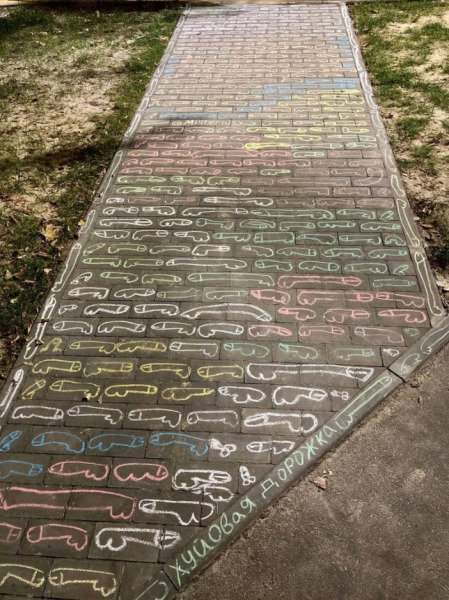 хуйовая дорожка